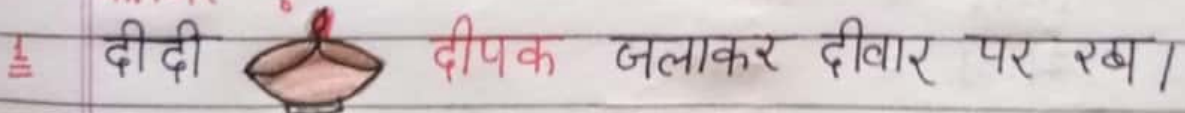 1 दीदी दीपक जलाकर दीवार पर रख।